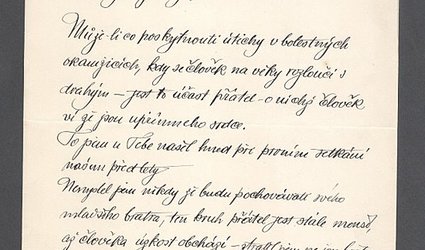 Může-li co poskytnouti útěchy v bolestných
okamžicích, kdy se člověk na věky rozloučí s
drahým – jest to účast přátel – o nichž člověk
ví že jsou upřímného srdce.
To jsem u Tebe našel hned při prvním setkání
našem před lety.
Nemyslel jsem nikdy že budu pochovávati svého
mladšího bratra, ten kruh přátel jest stále menší,
až člověka úzkost obchází – ztratil